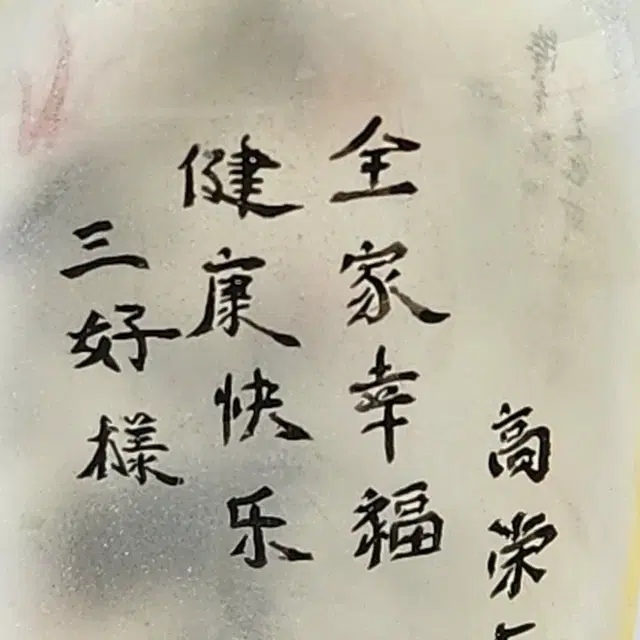 高荣
全家幸福
健康快乐
三好樣